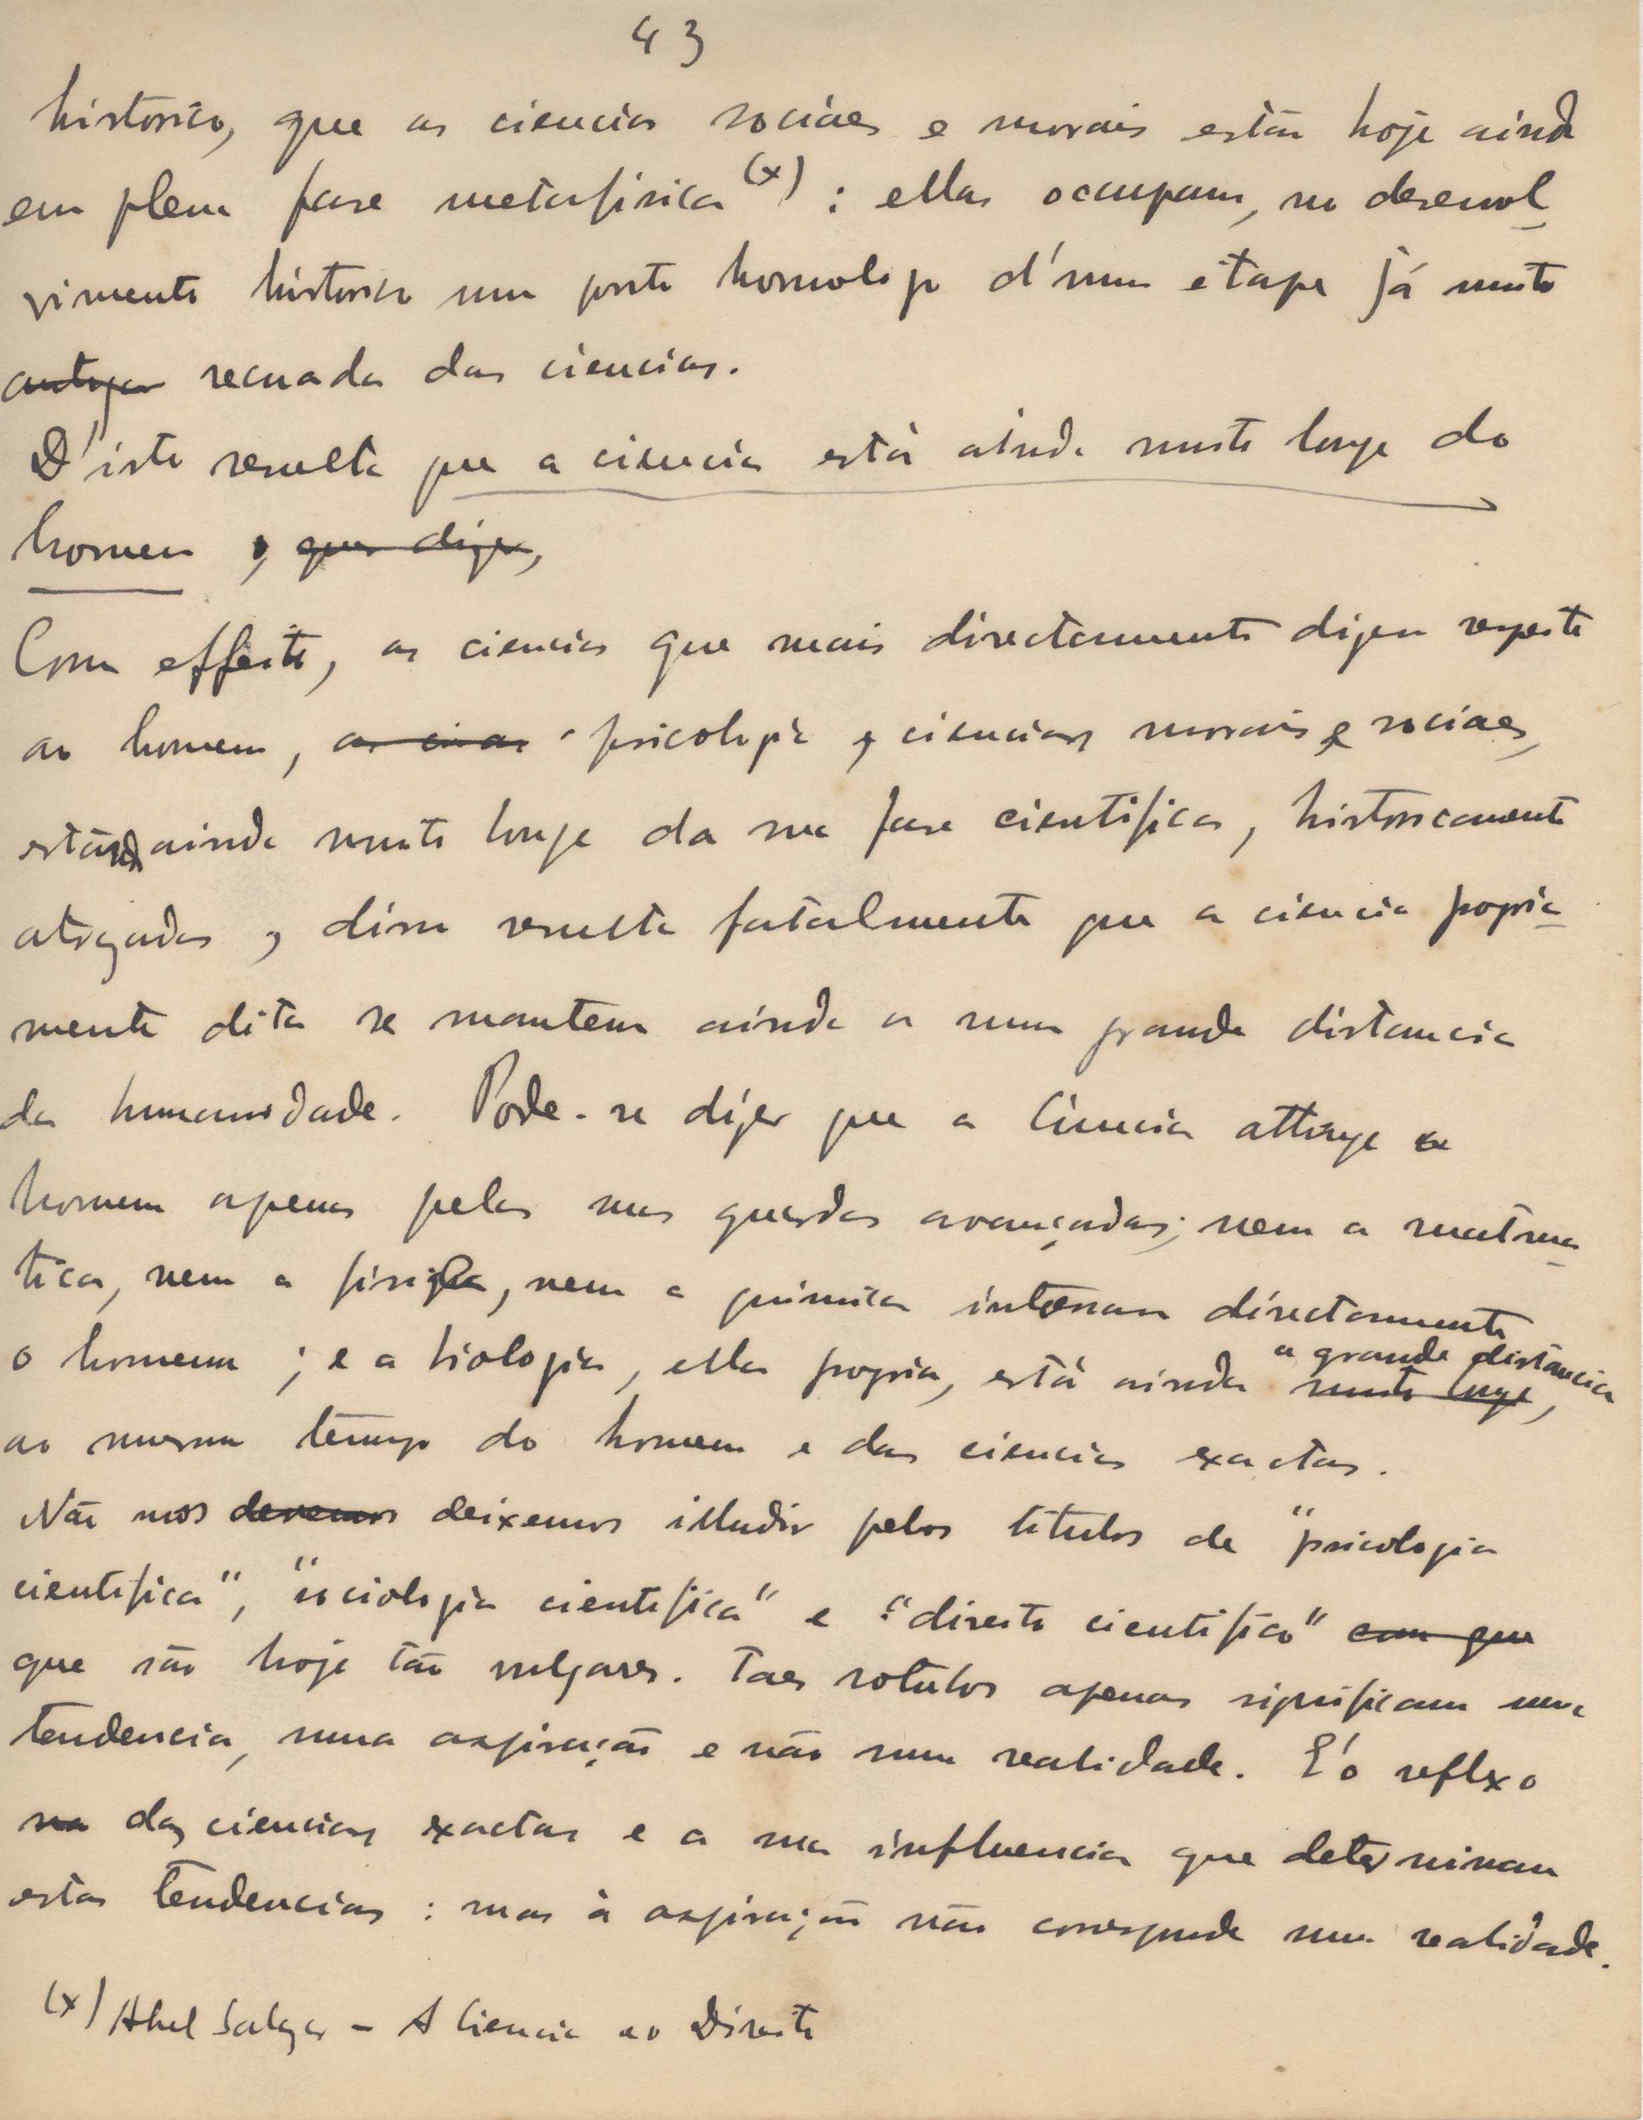 43
historico, que as ciencias sociaes e morais estão hoje ainda
em plena fase metafisica (x) : ellas occupam, no desenvol-
vimento historico um posto homologo d'uma etapa já muito
antiga recuada das ciencias.
D'isto resulta que a ciencia está ainda muito longe do
homem, quer dizer,
Com effeito, as ciencias que mais directamente dizem respeito
ao homem, psicologia, ciencias morais e sociaes,
estão ainda muito longe da sua fase cientifica, historicamente
atrazadas, disso resulta fatalmente que a ciencia propria-
mente dita se mantem ainda a uma grande distancia
da humanidade. Pode-se dizer que a Ciencia attinge o
homem apenas pelas suas guardas avançadas; nem a matema-
tica, nem a fisica, nem a quimica interessam directamente
o homem ; e a biologia, ella propria, está ainda muito longe, a grande distancia
ao mesmo tempo do homem e das ciencias exactas.
Não nos devemos deixemos illudir pelos titulos de "psicologia
cientifica", "sociologia cientifica" e "direito cientifico" com que
que são hoje tão vulgares. Taes rotulos apenas significam uma
tendencia, uma aspiração e não uma realidade. E' o reflexo
na das ciencias exactas e a sua influencia que determinam
estas tendencias : mas à aspiração não corresponde uma realidade.
(x) Abel Salazar - A Ciencia e o Direito